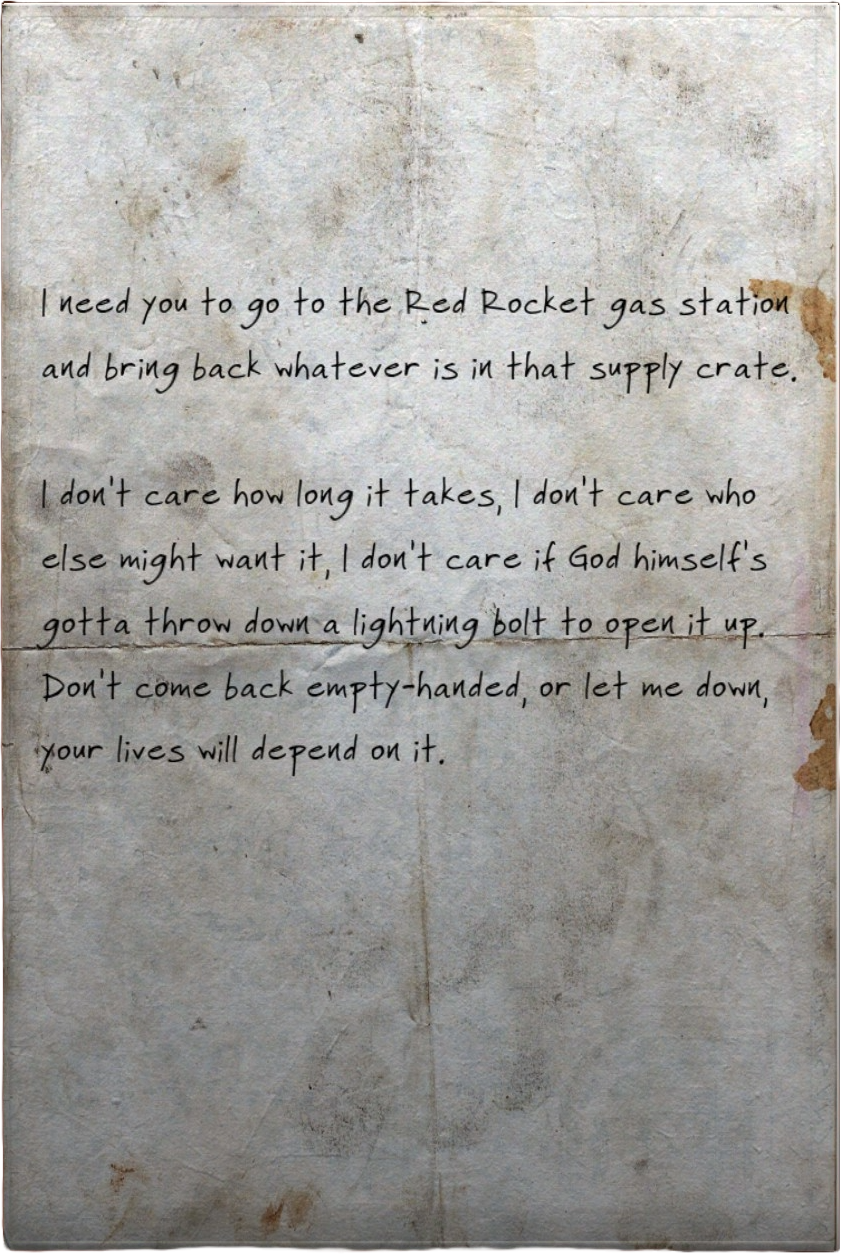 I need you to go to the Red Rocket gas station
and bring back whatever is in that supply crate.
I don't care how long it takes, I don't care who
else might want it, I don't care if God himself's
gotta throw down a lightning bolt to open it up.
Don't come back empty-handed, or let me down,
your lives will depend on it.